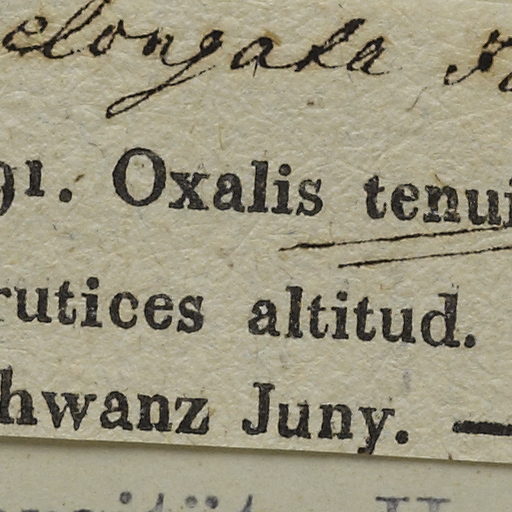 elongata
91. Oxalis tenui
rutices altitud.
hwanz Juny. —